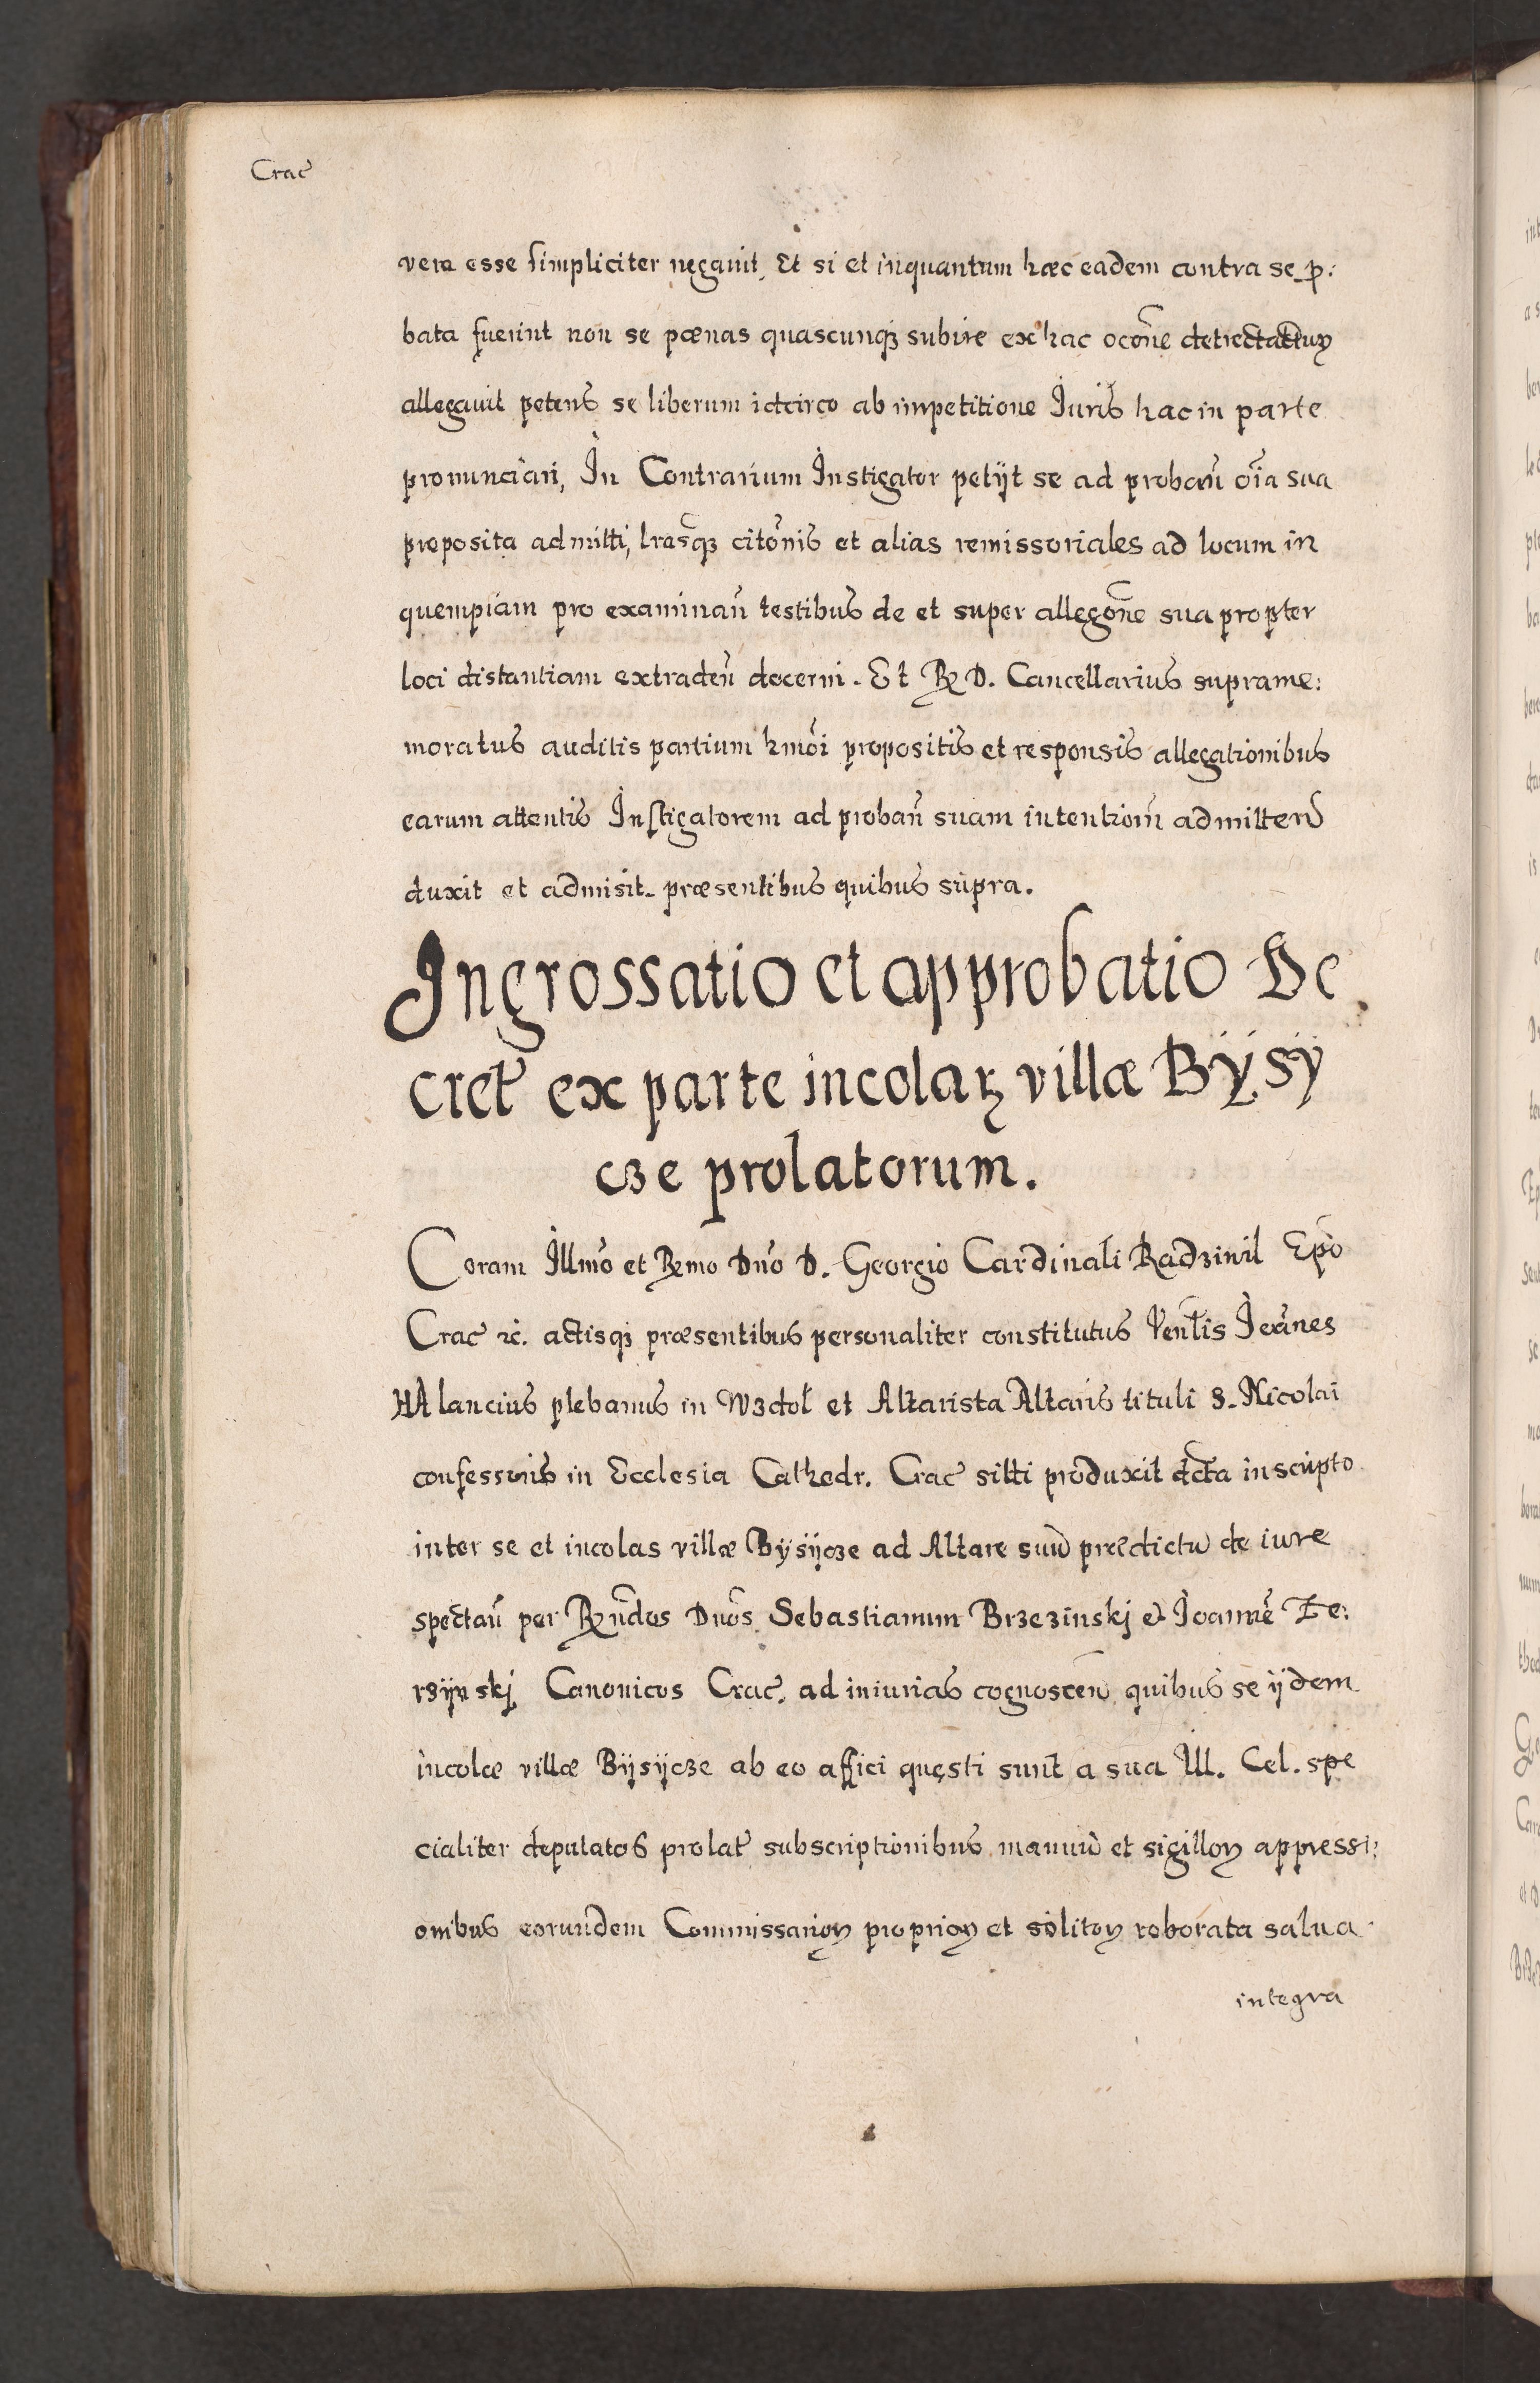 Crac̃
vera esse simpliciter negauit, Et si et inquantum hæc eadem contra se p̱:
bata fuerint non se pœnas quascunqꝫ subire ex hac occōne detrectaturꝫ
allegauit petens se liberum idcirco ab impetitione Iuris hac in parte
pronunciari, In Contrarium Instigator petijt se ad proban̄ oīa sua
proposita admitti, lrasqꝫ citōnis et alias remissoriales ad locum in
quempiam pro examinan̄ testibus de et super allegōne sua propter
loci distantiam extraden̄ decerni. Et R D. Cancellarius suprame:
moratus auditis partium hmōi propositis et responsis allegationibus
earum attentis Instigatorem ad proban̄ suam intentiom̄ admitten̄
duxit et admisit. præsentibus quibus supra.
Ingrossatio et approbatio De
cret̃ ex parte incolaꝝ villæ Bÿsÿ
cze prolatorum.
Coram Illmō et Rmo Dnō D. Georgio Cardinali Radziwil Ep̄o
Crac̃ ꝛc̃. actisqꝫ præsentibus personaliter constitutus Venl̃is Ioãnes
HAlancius plebanus in Wzdoł et Altarista Altaris tituli S. Nicolai
confessoris in Ecclesia Cathedr. Crac̃ sitti produxit dcta in scripto
inter se et incolas villæ Bÿsÿcze ad Altare suū prædictū de iure
spectan̄ per Rn̄dos Dnōs Sebastianum Brzezinskj et Ioannē Te:
rsÿnskj Canonicos Crac̃. ad iniurias cognoscen̄ quibus se ÿdem
incolæ villæ Bÿsÿcze ab eo affici quęsti sunt a sua Ill. Cel. spe
cialiter deputatos prolat̃ subscriptionibus manuū et sigilloꝝ appressi:
onibus eorundem Commissarioꝝ proprioꝝ et solitoꝝ roborata salua
integra